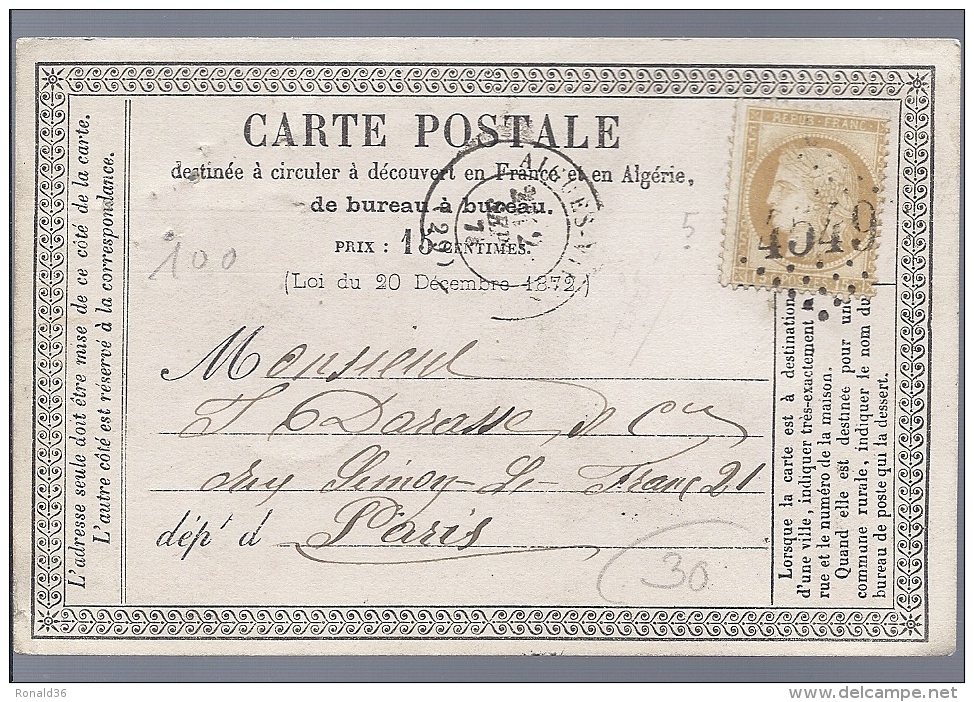 CARTE POSTALE
destinée à circuler à découvert en France et en Algérie,
de bureau à bureau.
PRIX : 15 CENTIMES.
(Loi du 20 Décembre 1872.)
REPUB. FRANC.
4549
29
5
100
L'adresse seule doit être mise de ce côté de la carte.
L'autre côté est réservé à la correspondance.
Monsieur
Darasse & Cie
Simon-Le-Franc 21
dép' d Paris
30
Lorsque la carte est à destination
d'une ville, indiquer très-exactement la
rue et le numéro de la maison.
Quand elle est destinée pour une
commune rurale, indiquer le nom du
bureau de poste qui la dessert.
Ronald36
www.delcampe.net